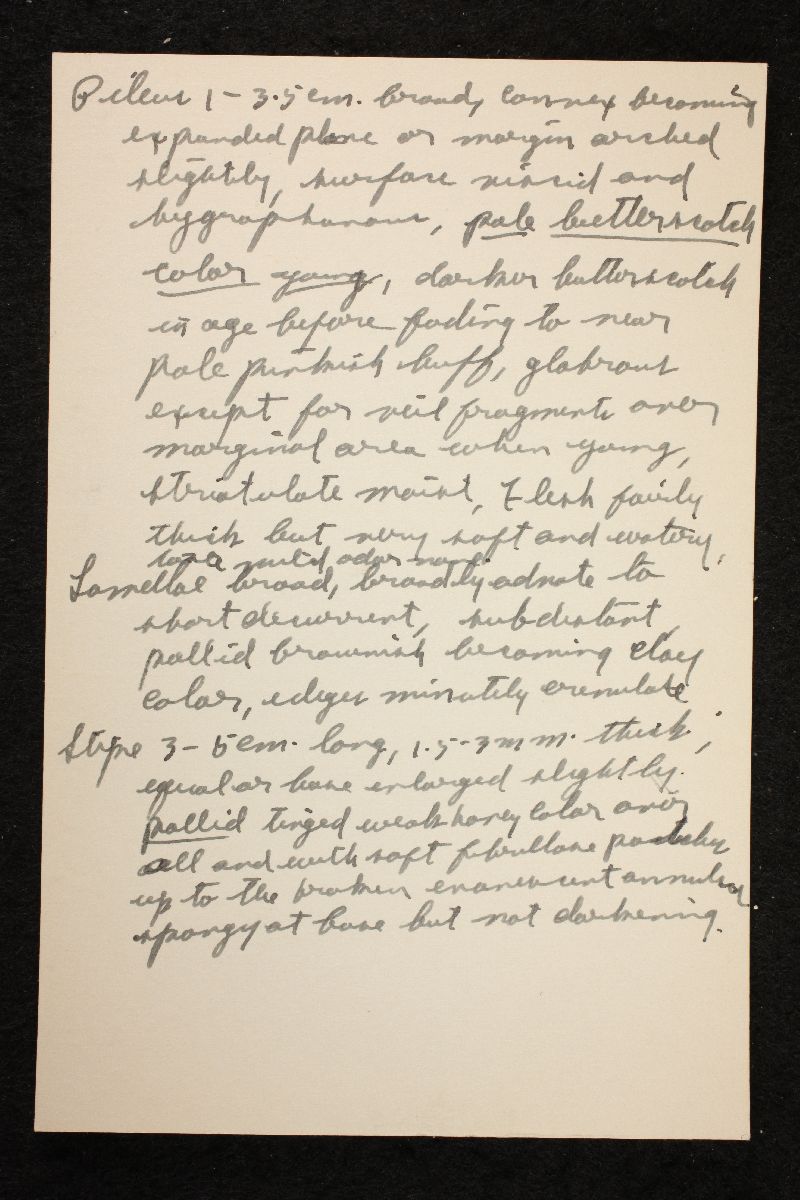 Pileus 1 – 3.5 cm. broad, convex becoming
expanded plane or margin arched
slightly, surface viscid and
hygrophanous, pale butterscotch
color young, darker butterscotch
in age before fading to near
pale pinkish buff, glabrous
except for veil fragments over
marginal area when young,
striatulate moist, Flesh fairly
thick but very soft and watery,
taste mild, odor none.
Lamellae broad, broadly adnate to
short decurrent, subdistant,
pallid brownish becoming clay
color, edges minutely crenulate
Stipe 3 – 5 cm. long, 1.5-3 mm. thick,
equal or base enlarged slightly.
pallid tinged weak honey color over
all and with soft fibrillose patches
up to the broken evanescent annulus
spongy at base but not darkening.